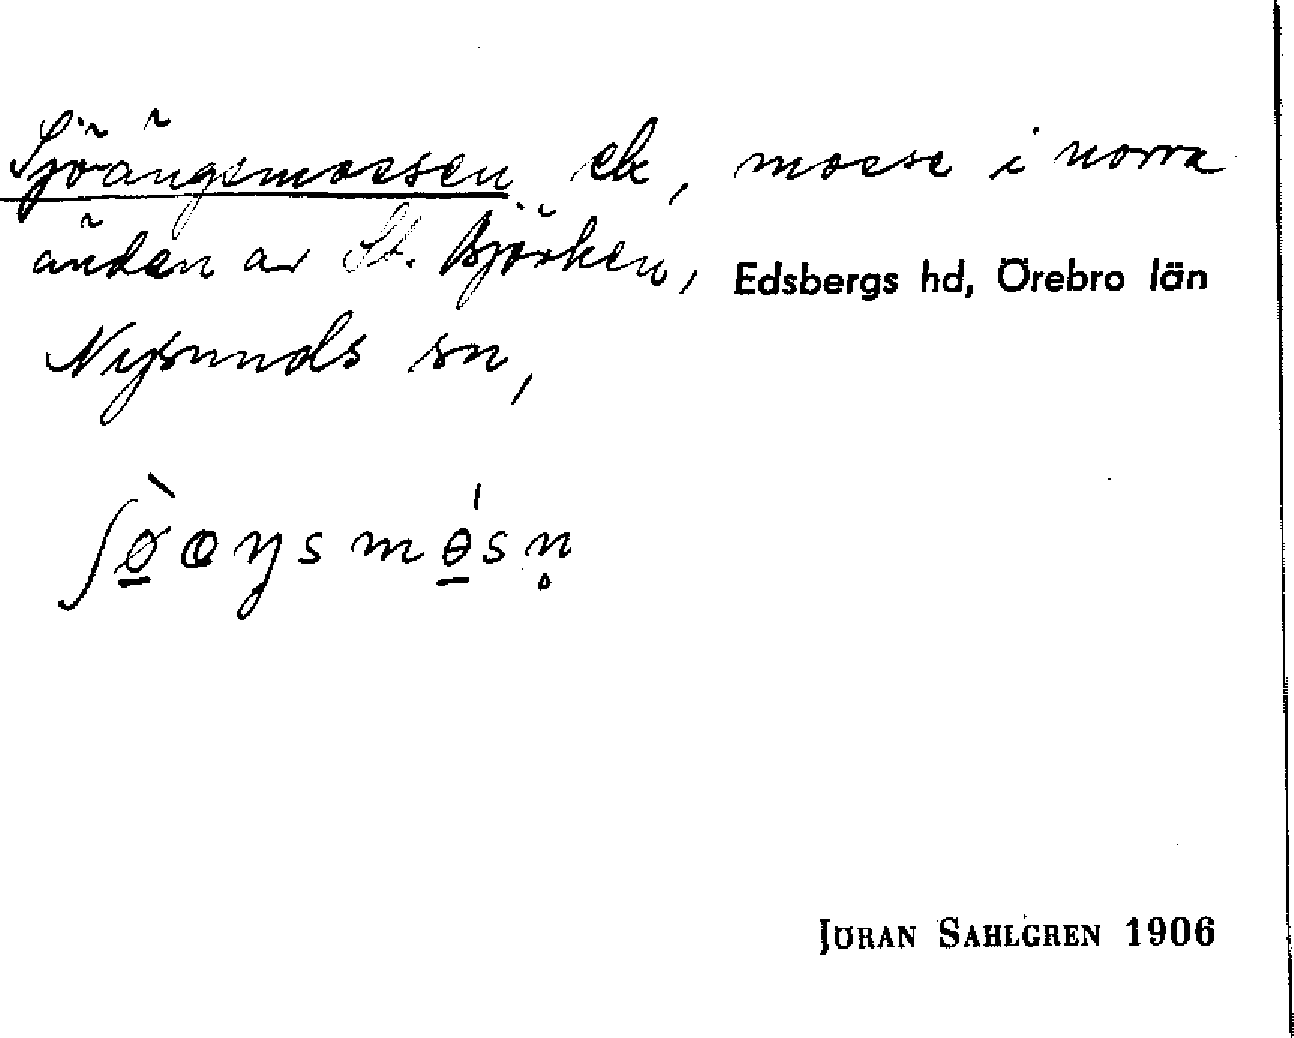 Sjöängsmossen ek, mosse i norra
änden av St. Björken, Edsbergs hd, Örebro län
Nysunds sn,
JÖRAN SAHLGREN 1906